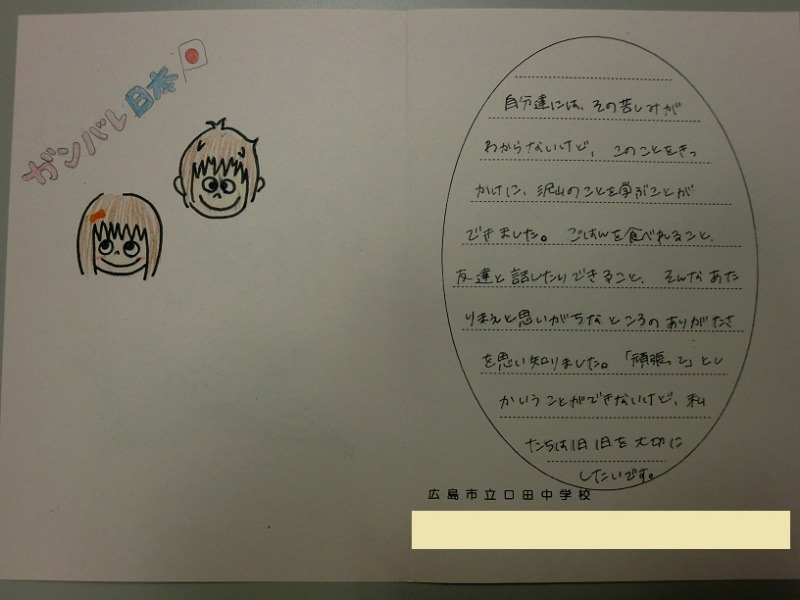 ガンバレ日本
自分達には、その苦しみが
わからないけど、このことをきっ
かけに、沢山のことを学ぶことが
できました。ごはんを食べれること、
友達と話したりできること、そんなあた
りまえと思いがちなところのありがたさ
を思い知りました。「頑張って」とし
かいうことができないけど、私
たちは1日1日を大切に
したいです。
広島市立口田中学校